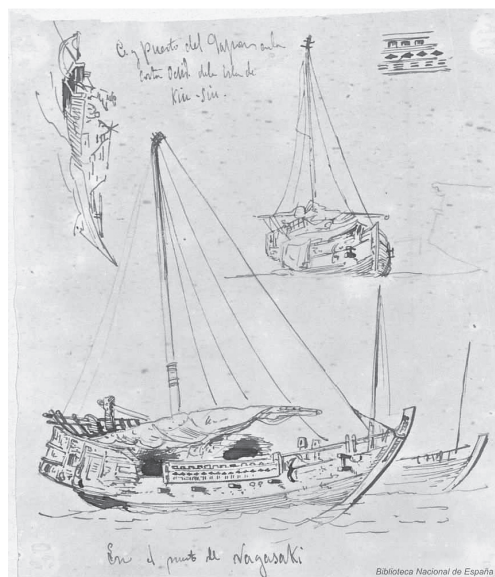 C. y puerto del Japon en la
Costa Occid. de la isla de
Kiu-Siu.
En el puerto de Nagasaki
Biblioteca Nacional de España